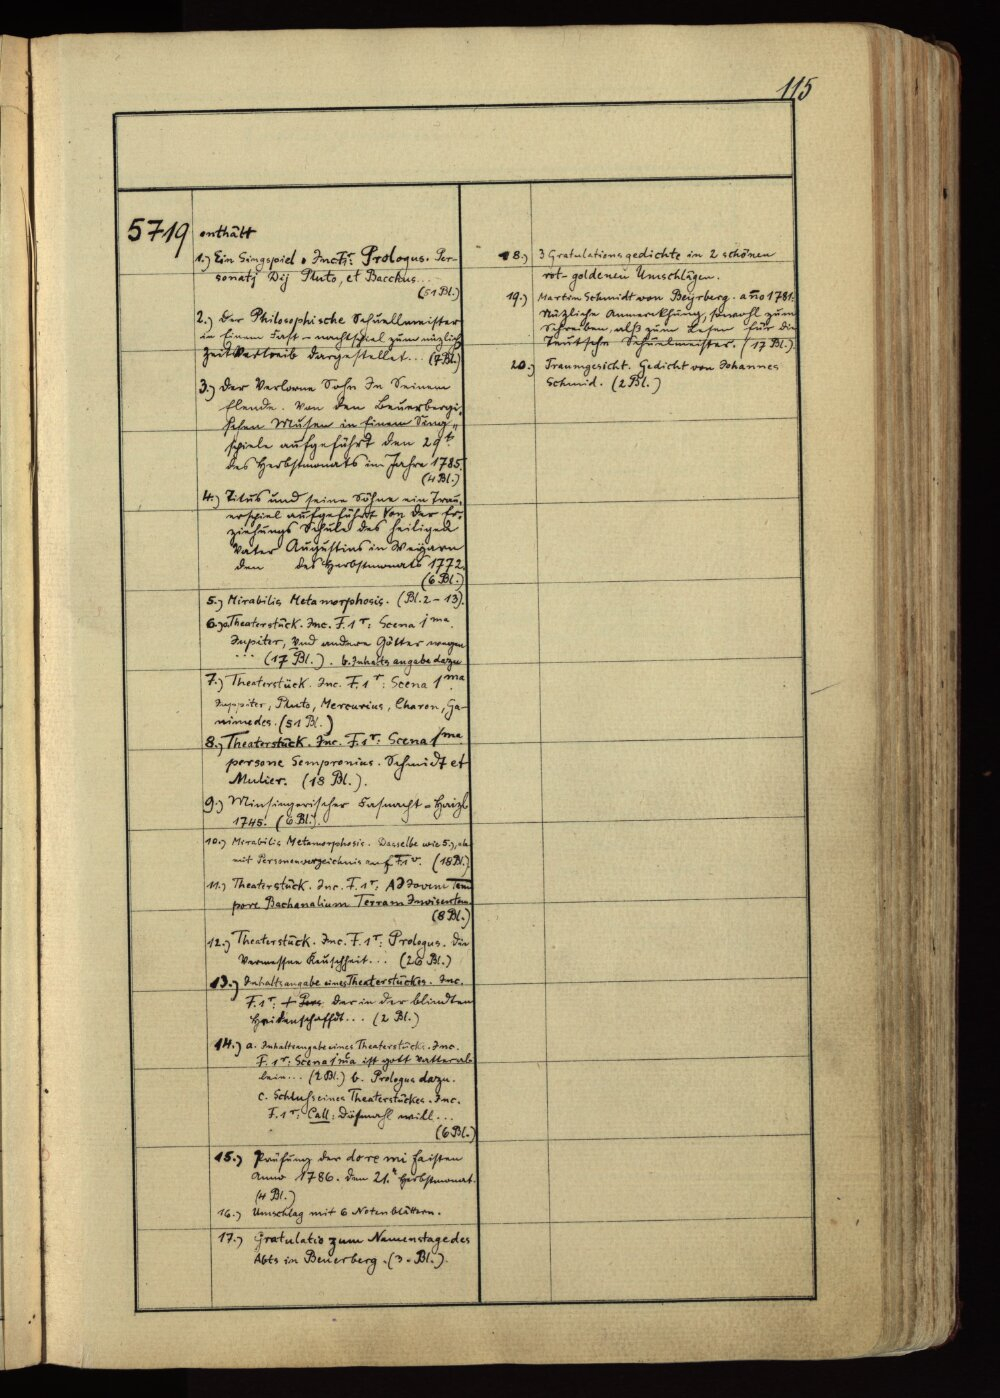 115
5719 enthält
1.) Ein Singspiel. Inc. F. 1r: Prologus. Per-
sonatj Dij Pluto, et Bacchus...
(51 Bl.)
2.) Der Philosophische Schuellmeister
in Einem Fast-nachtspiel zum nüzlich
Zeit Vertreib dargestellet... (7 Bl.)
3.) Der Verlorne Sohn In Seinem
Elende. Von den Beuerbergi-
schen Musen in Einem Sing-
spiele aufgeführt den 29t.
des Herbstmonats im Jahre 1785.
(4 Bl.)
4.) Titus und seine Söhne ein Trau-
erspiel aufgeführt von der Er-
ziehungs Schule des heiligen
Vater Augustins in Weyarn
den des Herbstmonats 1772.
(6 Bl.)
5.) Mirabilis Metamorphosis. (Bl. 2-13).
6.) a. Theaterstück. Inc. F. 1r: Scena 1ma.
Jupiter, Und andere Götter wegen
... (17 Bl.). b. Inhaltsangabe dazu
7.) Theaterstück. Inc. F. 1r: Scena 1ma.
Juppiter, Pluto, Mercurius, Charon, Ga-
nimedes. (51 Bl.)
8.) Theaterstück. Inc. F. 1r: Scena 1ma
persone Sempronius. Schmidt et
Mulier. (18 Bl.).
9.) Minsingerischer Fasnacht-
1745. (6 Bl.).
10.) Mirabilis Metamorphosis. Dasselbe wie 5.),
mit Personenverzeichnis auf F. 1v. (18 Bl.)
11.) Theaterstück. Inc. F. 1r: Ad Jovem Tem
pore Bachanalium Terram Invisentem
(8 Bl.)
12.) Theaterstück. Inc. F. 1r: Prologus. Die
Vermessne Keuschheit... (26 Bl.)
13.) Inhaltsangabe eines Theaterstückes. Inc.
F. 1r: + Pers der in der blindten
Heidenschafft... (2 Bl.)
14.) a. Inhaltsangabe eines Theaterstücks. Inc.
F. 1r: Scena 1ma ist gott Vatter al-
lein... (2 Bl.) b. Prologus dazu.
c. Schluß eines Theaterstückes. Inc.
F. 1r: Call: will...
(6 Bl.)
15.) Prüfung der do re mi Faisten
Anno 1786. den 21. Herbstmonat.
(4 Bl.)
16.) Umschlag mit 6 Notenblättern.
17.) Gratulatio zum Namenstage des
Abts in Beuerberg. (3. Bl.).
18.) 3 Gratulationsgedichte in 2 schönen
rot-goldenen Umschlägen.
19.) Martin Schmidt von Beyrberg. año 1781.
Nüzliche Anmerkhung, sowohl zum
Schreiben, alß zum Lesen für die
Teutschn Schuelmeister. (17 Bl.).
20.) Traumgesicht. Gedicht von Johannes
Schmid. (2 Bl.)